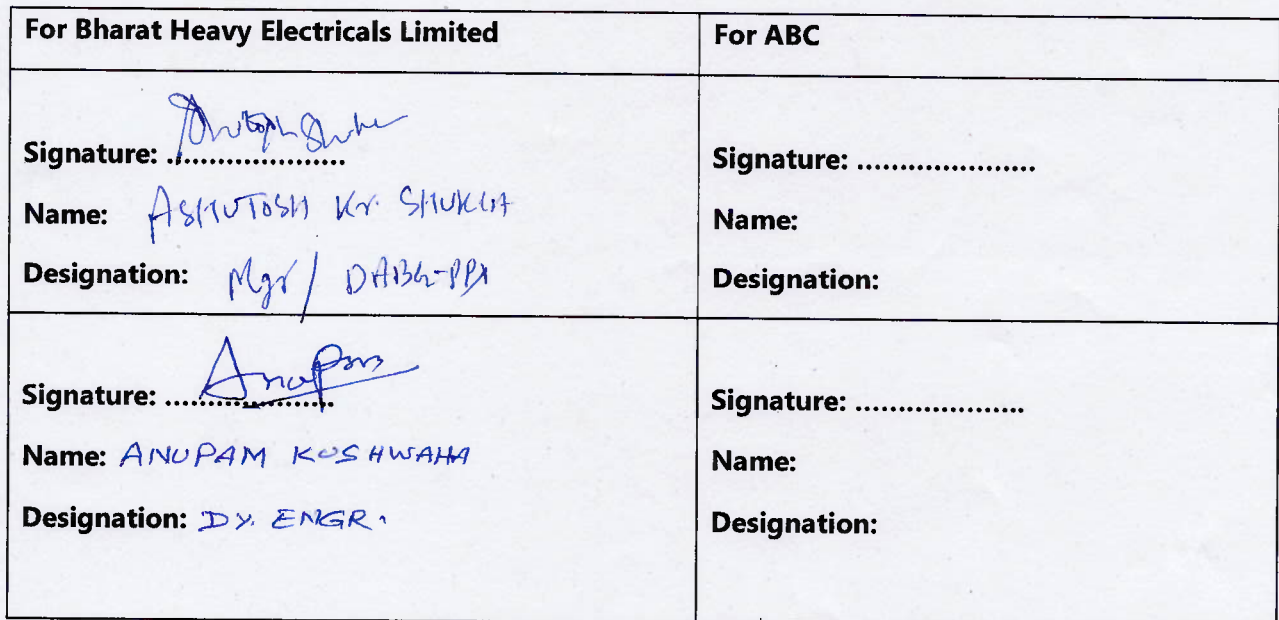 For Bharat Heavy Electricals Limited
For ABC
Signature: .....................
Name: ASHUTOSH Kr. SHUKLA
Designation: Mgr/
Signature: .....................
Name:
Designation:
Signature: Anupam ....................
Name: ANUPAM KUSHWAHA
Designation: Dy. ENGR.
Signature: ....................
Name:
Designation: